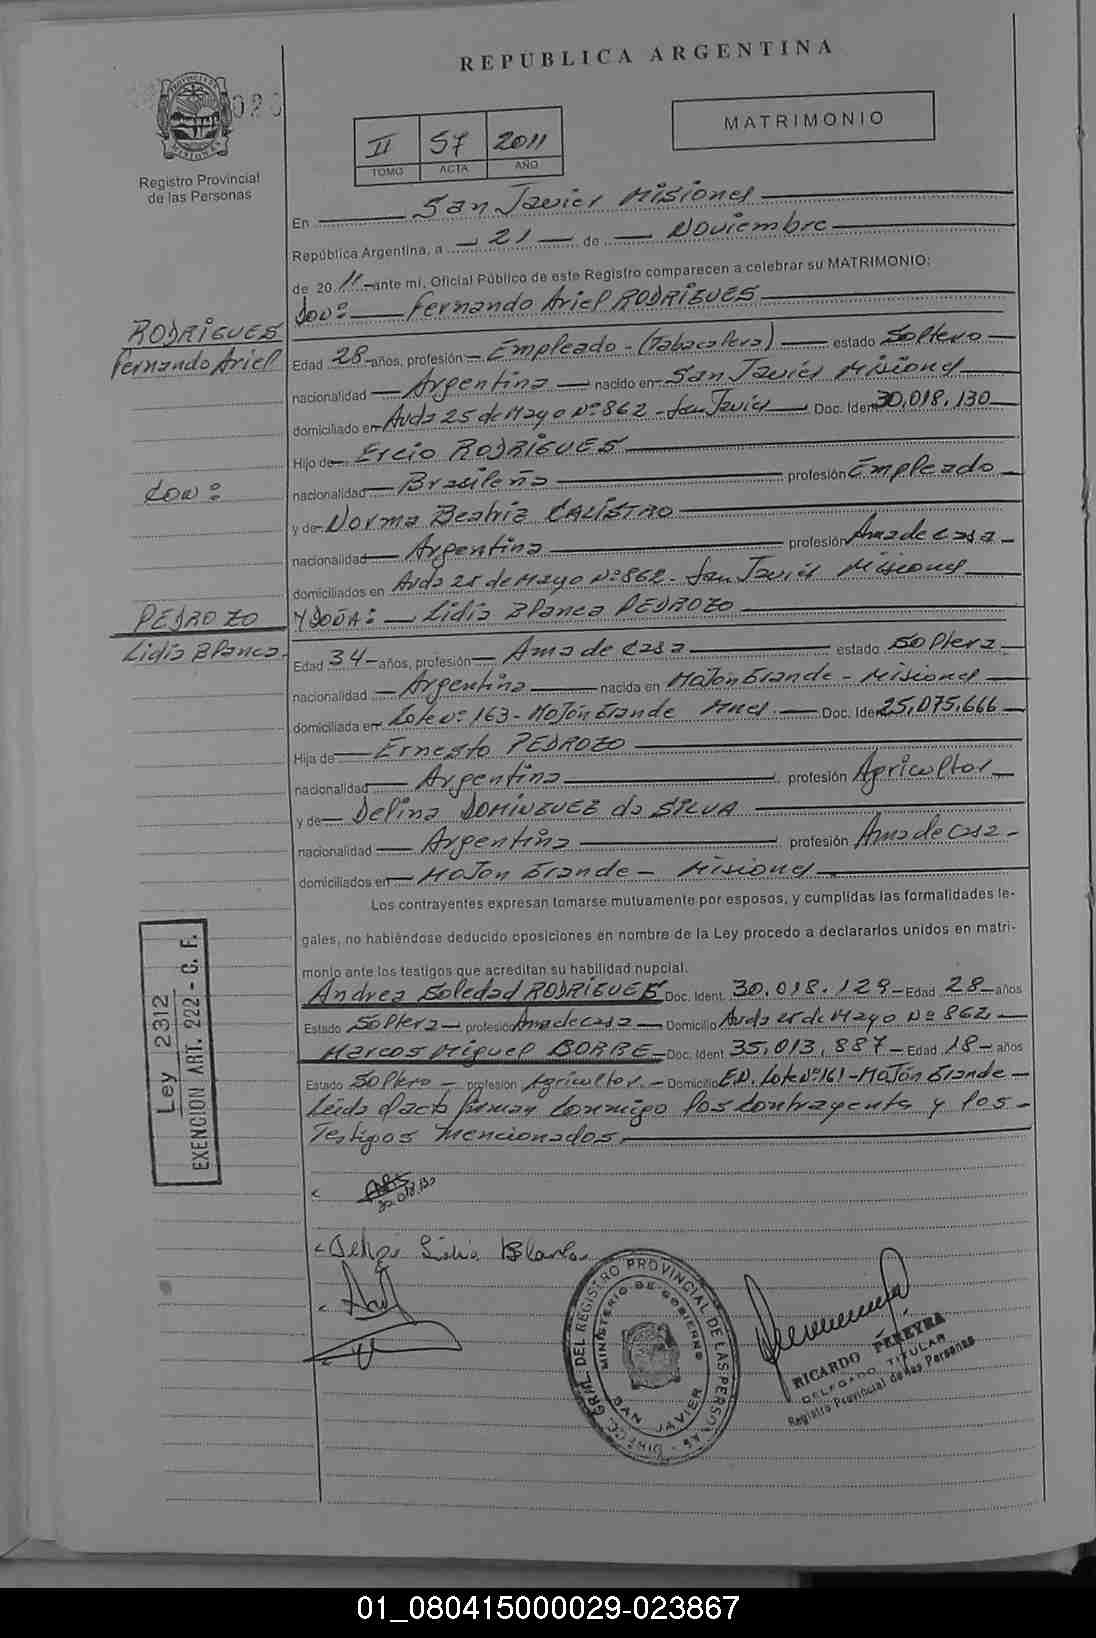 REPUBLICA ARGENTINA
PROVINCIA DE MISIONES
020
Registro Provincial
de las Personas
II 57 2011
TOMO ACTA AÑO
MATRIMONIO
En San Javier Misiones
República Argentina, a 21 de Noviembre
de 2011 ante mí, Oficial Público de este Registro comparecen a celebrar su MATRIMONIO:
Don: Fernando Ariel RODRIGUES
RODRIGUES
Fernando Ariel
Edad 28 años, profesión Empleado - (Tabacalera) estado Soltero
nacionalidad Argentina nacido en San Javier Misiones
domiciliado en Avda 25 de Mayo Nº 862 - San Javier Doc. Ident 30,018,130
Hijo de Ercio RODRIGUES
Con:
nacionalidad Brasileña profesión Empleado
y de Norma Beatriz CALISTRO
nacionalidad Argentina profesión Ama de casa
domiciliados en Avda 25 de Mayo Nº 862 - San Javier Misiones
PEDROZO
Lidia Blanca
Y DOÑA: Lidia Blanca PEDROZO
Edad 34 años, profesión Ama de casa estado Soltera
nacionalidad Argentina nacida en Mojon Grande - Misiones
domiciliada en Lote Nº 163 - Mojón Grande Mnes. Doc. Ident 25,075,666
Hija de Ernesto PEDROZO
nacionalidad Argentina profesión Agricultor
y de Delina DOMINGUEZ da SILVA
nacionalidad Argentina profesión Ama de casa
domiciliados en Mojon Grande - Misiones
Los contrayentes expresan tomarse mutuamente por esposos, y cumplidas las formalidades le-
gales, no habiéndose deducido oposiciones en nombre de la Ley procedo a declararlos unidos en matri-
monio ante los testigos que acreditan su habilidad nupcial.
Andrea Soledad RODRIGUES Doc. Ident. 30.018.129 Edad 28 años
Estado Soltera profesión Ama de casa Domicilio Avda 25 de Mayo Nº 862
Marcos Miguel BORBE Doc. Ident 35,013,887 Edad 18 años
Estado Soltero profesión Agricultor Domicilio E.D. Lote Nº 161 - Mojón Grande
Leída el acta firman conmigo los contrayentes y los
Testigos mencionados.
Ley 2312
EXENCION ART. 222 - C. F.
30.018.130
Lidia Blanca
DIRECC. GRAL. DEL REGISTRO PROVINCIAL DE LAS PERSONAS
MINISTERIO DE GOBIERNO
SAN JAVIER
RICARDO PEREYRA
DELEGADO TITULAR
Registro Provincial de las Personas
01_080415000029-023867